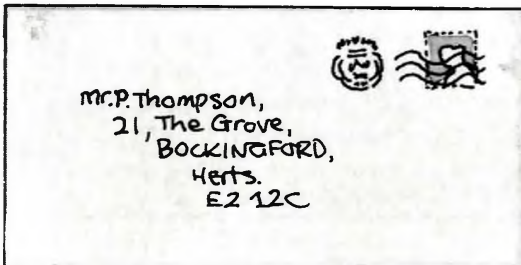 Mr.P.Thompson,
21, The Grove,
BOCKINGFORD,
Herts.
E2 12C